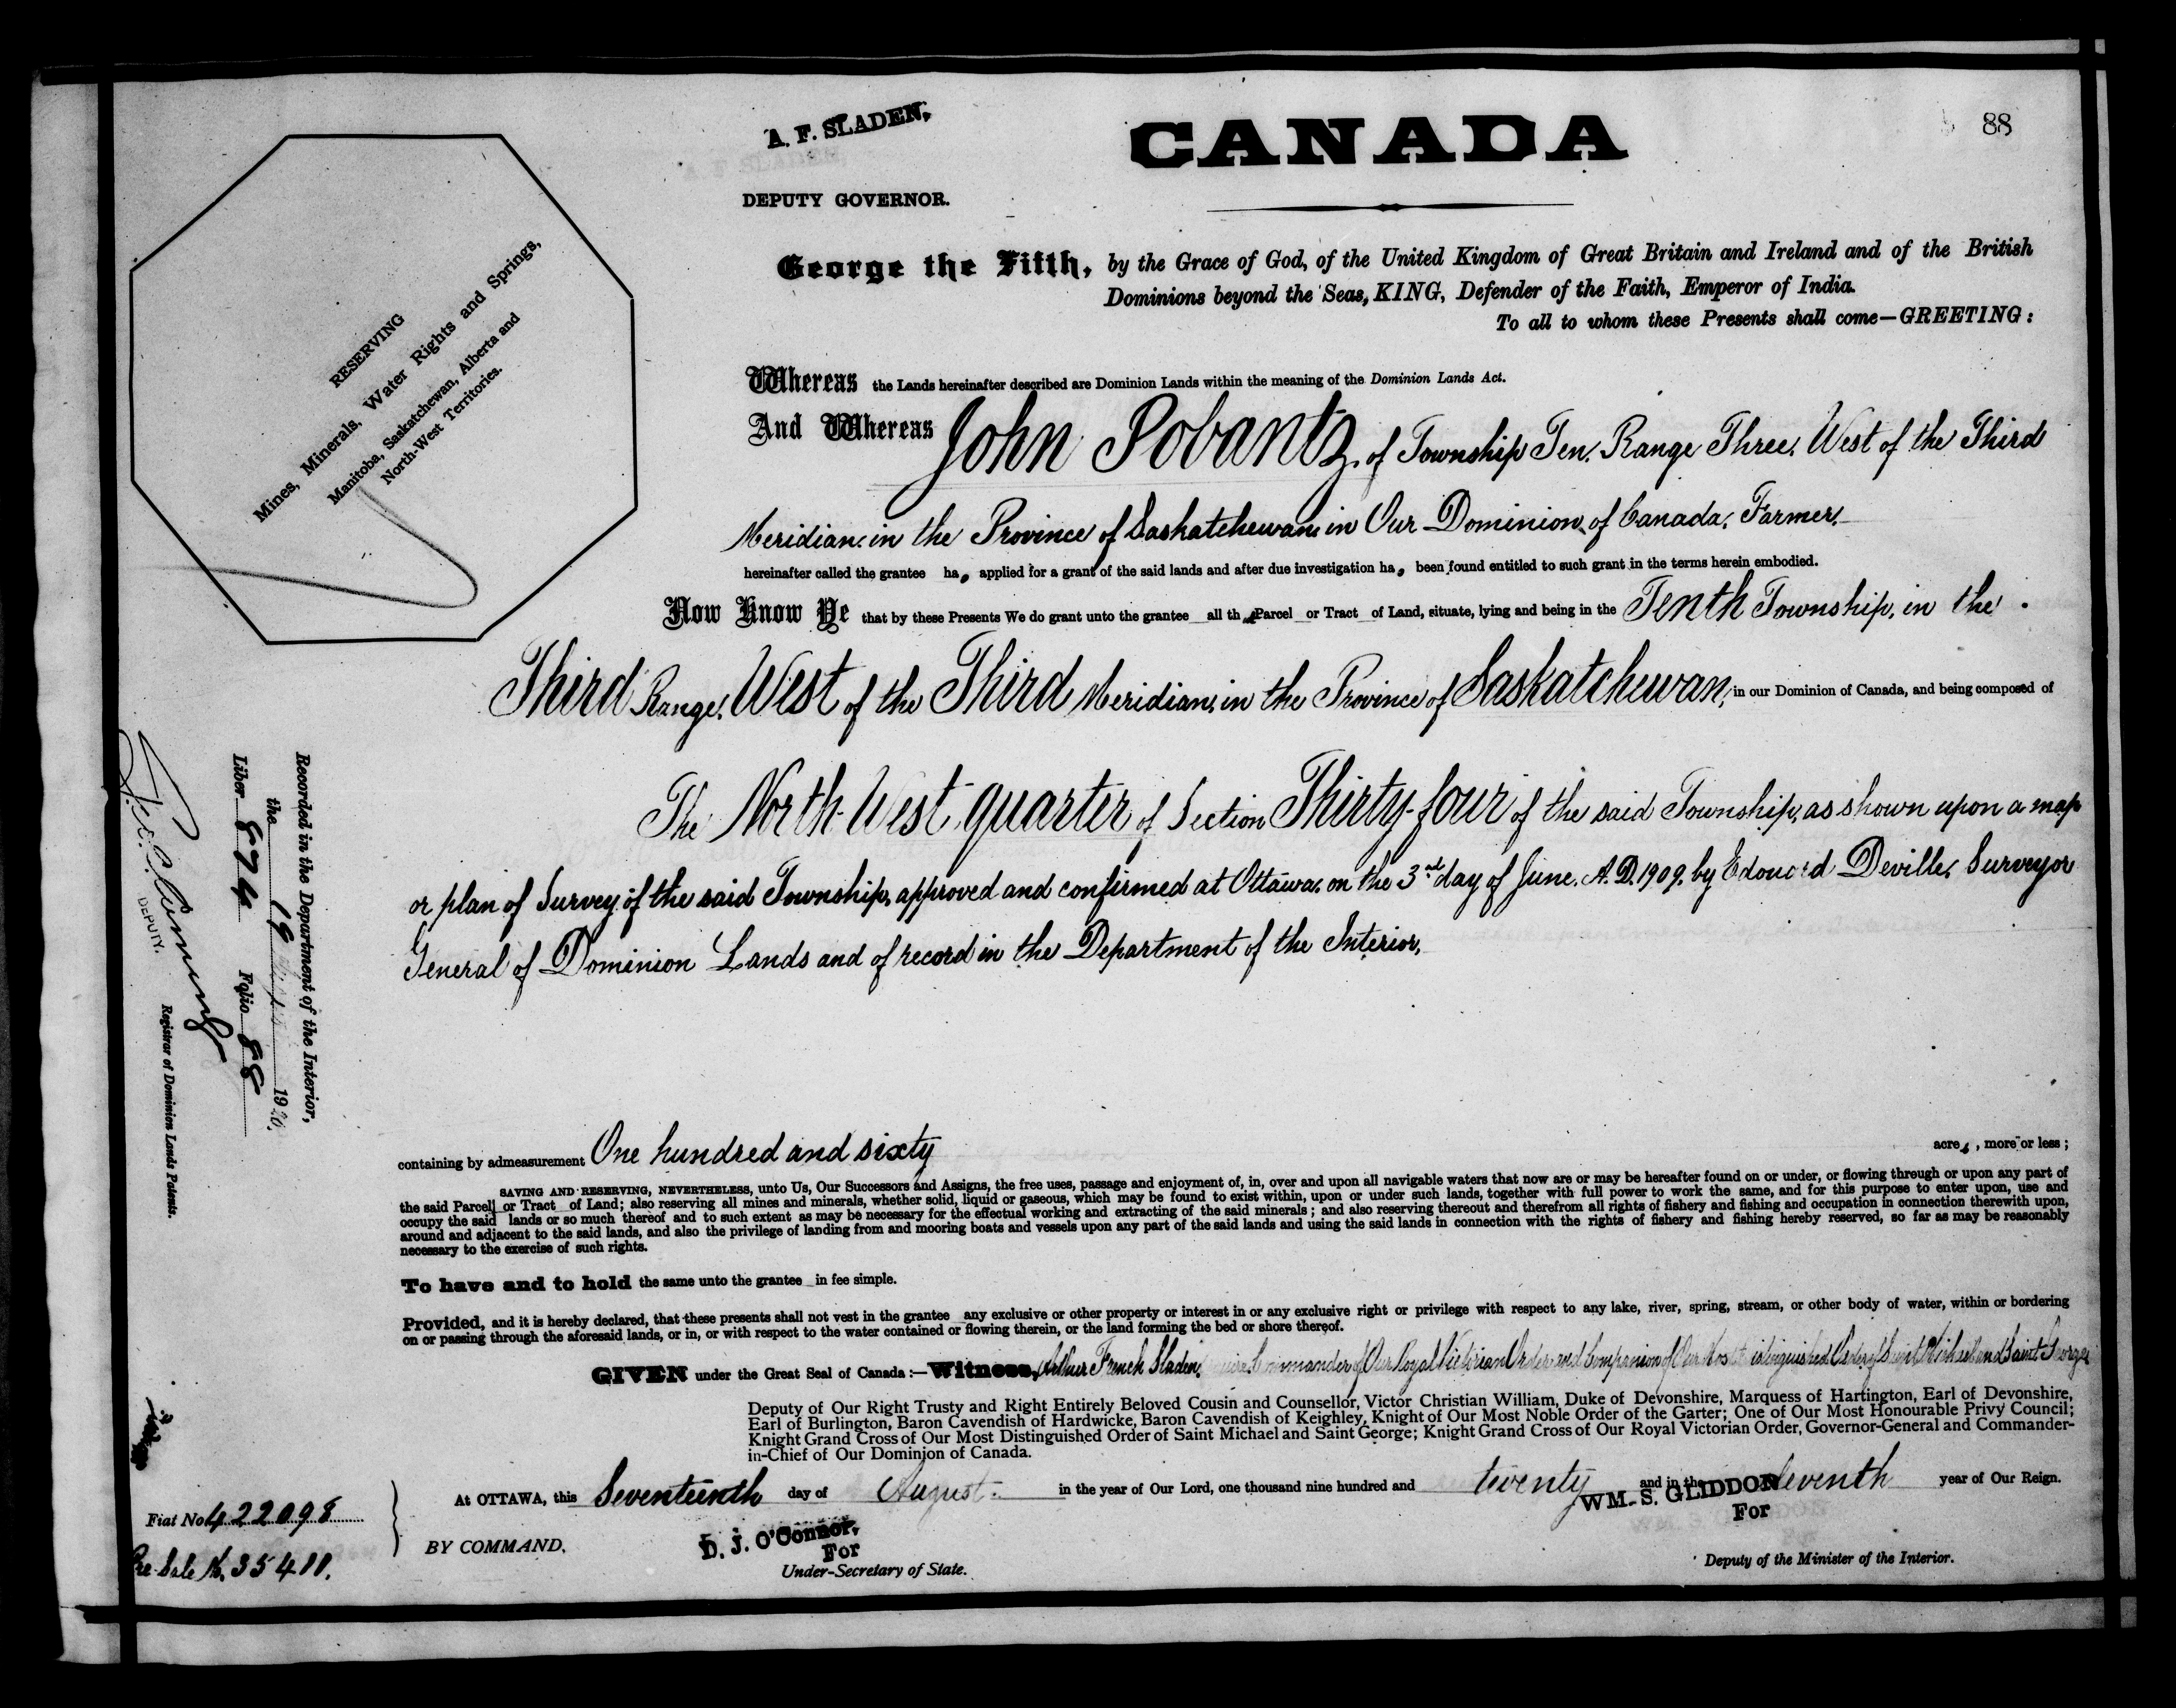 88
A. F. SLADEN,
DEPUTY GOVERNOR.
CANADA
RESERVING
Mines, Minerals, Water Rights and Springs,
Manitoba, Saskatchewan, Alberta and
North-West Territories.
George the Fifth, by the Grace of God, of the United Kingdom of Great Britain and Ireland and of the British
Dominions beyond the Seas, KING, Defender of the Faith, Emperor of India.
To all to whom these Presents shall come—GREETING:
Whereas the Lands hereinafter described are Dominion Lands within the meaning of the Dominion Lands Act.
And Whereas John Pobantz, of Township Ten, Range Three, West of the Third
Meridian, in the Province of Saskatchewan, in Our Dominion of Canada, Farmer,
hereinafter called the grantee has applied for a grant of the said lands and after due investigation has been found entitled to such grant in the terms herein embodied.
Now Know Ye that by these Presents We do grant unto the grantee all that Parcel or Tract of Land, situate, lying and being in the Tenth Township, in the
Third Range, West of the Third Meridian, in the Province of Saskatchewan, in our Dominion of Canada, and being composed of
The North-West quarter of Section Thirty-four of the said Township, as shown upon a map
or plan of Survey of the said Township, approved and confirmed at Ottawa, on the 3rd day of June, A.D. 1909, by Edouard Deville, Surveyor
General of Dominion Lands and of record in the Department of the Interior,
Recorded in the Department of the Interior,
the 19 1920.
Liber 874 Folio 88
DEPUTY.
Registrar of Dominion Lands Patents.
containing by admeasurement One hundred and sixty acres, more or less;
SAVING AND RESERVING, NEVERTHELESS, unto Us, Our Successors and Assigns, the free uses, passage and enjoyment of, in, over and upon all navigable waters that now are or may be hereafter found on or under, or flowing through or upon any part of
the said Parcel or Tract of Land; also reserving all mines and minerals, whether solid, liquid or gaseous, which may be found to exist within, upon or under such lands, together with full power to work the same, and for this purpose to enter upon, use and
occupy the said lands or so much thereof and to such extent as may be necessary for the effectual working and extracting of the said minerals; and also reserving thereout and therefrom all rights of fishery and fishing and occupation in connection therewith upon,
around and adjacent to the said lands, and also the privilege of landing from and mooring boats and vessels upon any part of the said lands and using the said lands in connection with the rights of fishery and fishing hereby reserved, so far as may be reasonably
necessary to the exercise of such rights.
To have and to hold the same unto the grantee in fee simple.
Provided, and it is hereby declared, that these presents shall not vest in the grantee any exclusive or other property or interest in or any exclusive right or privilege with respect to any lake, river, spring, stream, or other body of water, within or bordering
on or passing through the aforesaid lands, or in, or with respect to the water contained or flowing therein, or the land forming the bed or shore thereof.
GIVEN under the Great Seal of Canada:—Witness, Arthur French Sladen, Commander of Our Royal Victorian Order and Companion of Our Most Distinguished Order of Saint Michael and Saint George
Deputy of Our Right Trusty and Right Entirely Beloved Cousin and Counsellor, Victor Christian William, Duke of Devonshire, Marquess of Hartington, Earl of Devonshire,
Earl of Burlington, Baron Cavendish of Hardwicke, Baron Cavendish of Keighley, Knight of Our Most Noble Order of the Garter; One of Our Most Honourable Privy Council;
Knight Grand Cross of Our Most Distinguished Order of Saint Michael and Saint George; Knight Grand Cross of Our Royal Victorian Order, Governor-General and Commander-
in-Chief of Our Dominion of Canada.
At OTTAWA, this Seventeenth day of August in the year of Our Lord, one thousand nine hundred and twenty and in the eleventh year of Our Reign.
Fiat No. 422098
BY COMMAND,
D. J. O'Connor,
For
Under-Secretary of State.
WM. S. GLIDDON
For
Deputy of the Minister of the Interior.
Pre-Sale No. 35411.